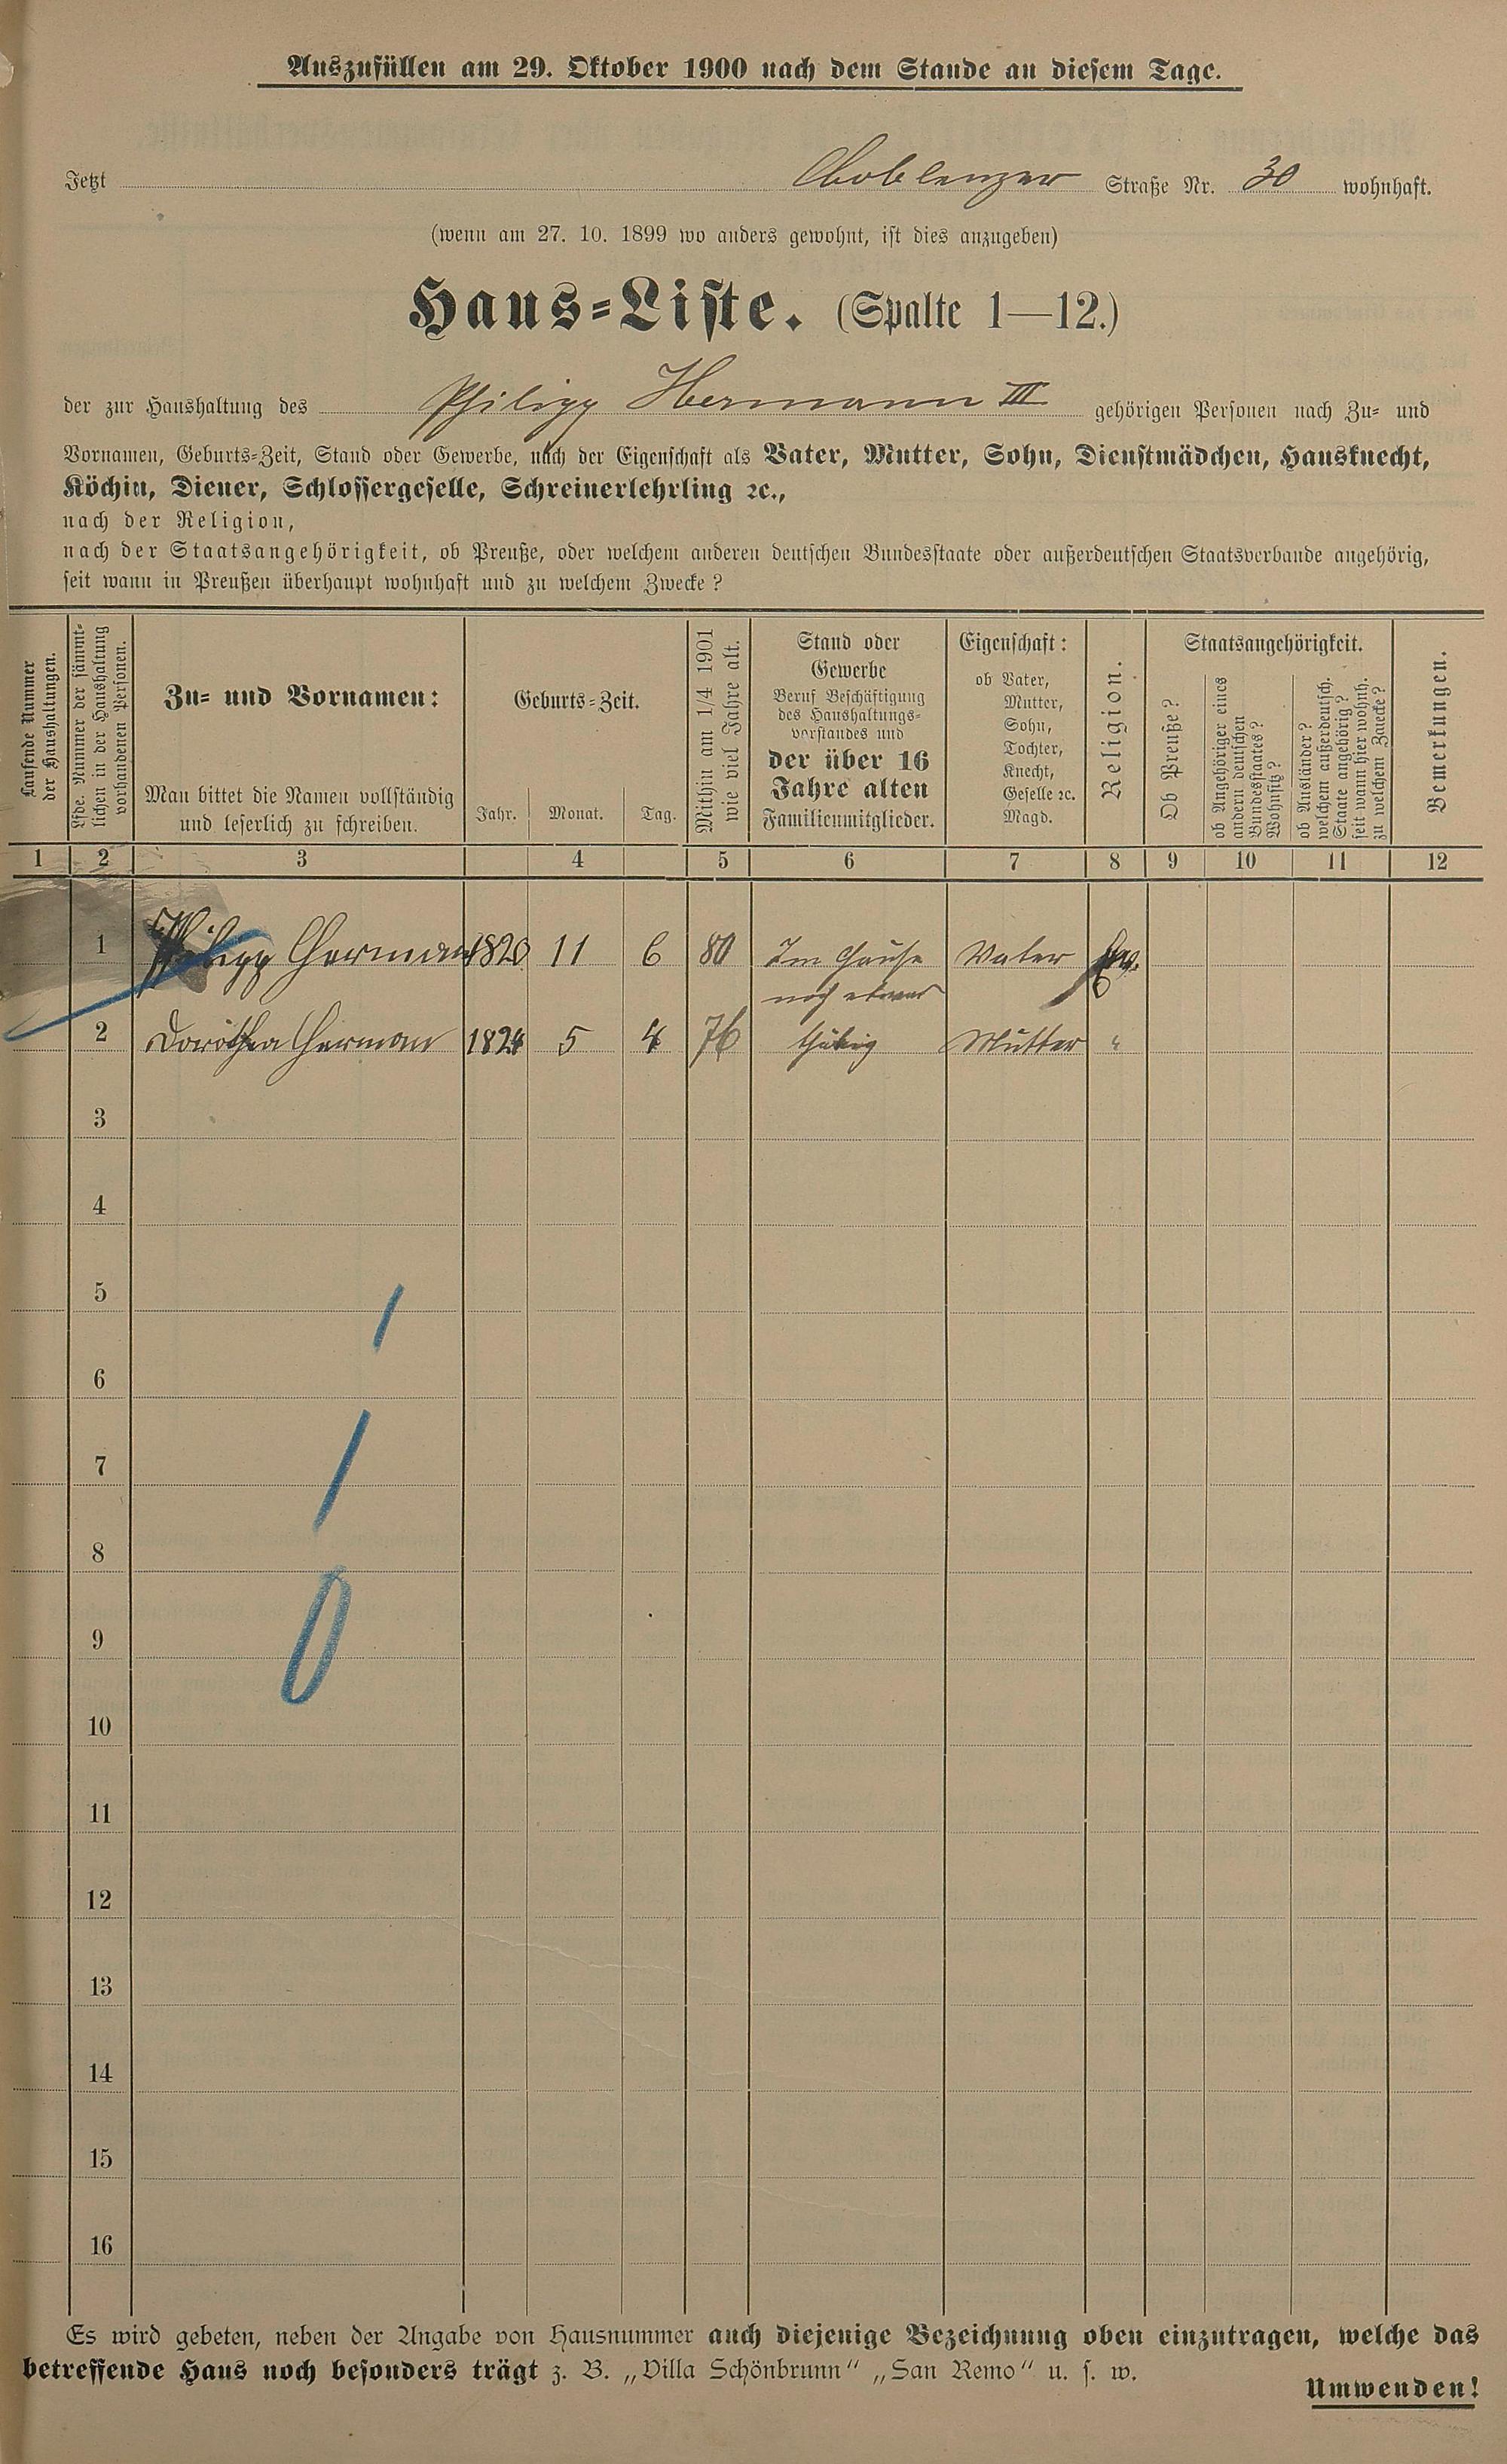 Auszufüllen am 29. Oktober 1900 nach dem Stande an diesem Tage.
Jetzt Coblenzer Straße Nr. 30 wohnhaft.
(wenn am 27. 10. 1899 wo anders gewohnt, ist dies anzugeben)
Haus-Liste. (Spalte 1—12.)
der zur Haushaltung des Philipp Hermann III gehörigen Personen nach Zu- und
Vornamen, Geburts-Zeit, Stand oder Gewerbe, nach der Eigenschaft als Vater, Mutter, Sohn, Dienstmädchen, Hausknecht,
Köchin, Diener, Schlossergeselle, Schreinerlehrling ꝛc.,
nach der Religion,
nach der Staatsangehörigkeit, ob Preuße, oder welchem anderen deutschen Bundesstaate oder außerdeutschen Staatsverbande angehörig,
seit wann in Preußen überhaupt wohnhaft und zu welchem Zwecke?
Laufende Nummer
der Haushaltungen.
Lfde. Nummer der sämmt-
lichen in der Haushaltung
vorhandenen Personen.
Zu- und Vornamen:
Man bittet die Namen vollständig
und leserlich zu schreiben.
Geburts-Zeit.
Jahr. Monat. Tag.
Mithin am 1/4 1901
wie viel Jahre alt.
Stand oder
Gewerbe
Beruf Beschäftigung
des Haushaltungs-
vorstandes und
der über 16
Jahre alten
Familienmitglieder.
Eigenschaft:
ob Vater,
Mutter,
Sohn,
Tochter,
Knecht,
Geselle ꝛc.
Magd.
Religion.
Staatsangehörigkeit.
Ob Preuße?
ob Angehöriger eines
andern deutschen
Bundesstaates?
Wohnsitz?
ob Ausländer?
welchem außerdeutsch.
Staate angehörig?
seit wann hier wohnh.
zu welchem Zwecke?
Bemerkungen.
1 2 3 4 5 6 7 8 9 10 11 12
1 Philipp Herman 1820 11 6 80 Im Hause Vater Ev.
noch etwas
2 Dorothea Herman 1824 5 4 76 thätig Mutter "
3
4
5
6
7
8
9
10
11
12
13
14
15
16
Es wird gebeten, neben der Angabe von Hausnummer auch diejenige Bezeichnung oben einzutragen, welche das
betreffende Haus noch besonders trägt z. B. „Villa Schönbrunn“ „San Remo“ u. s. w.
Umwenden!